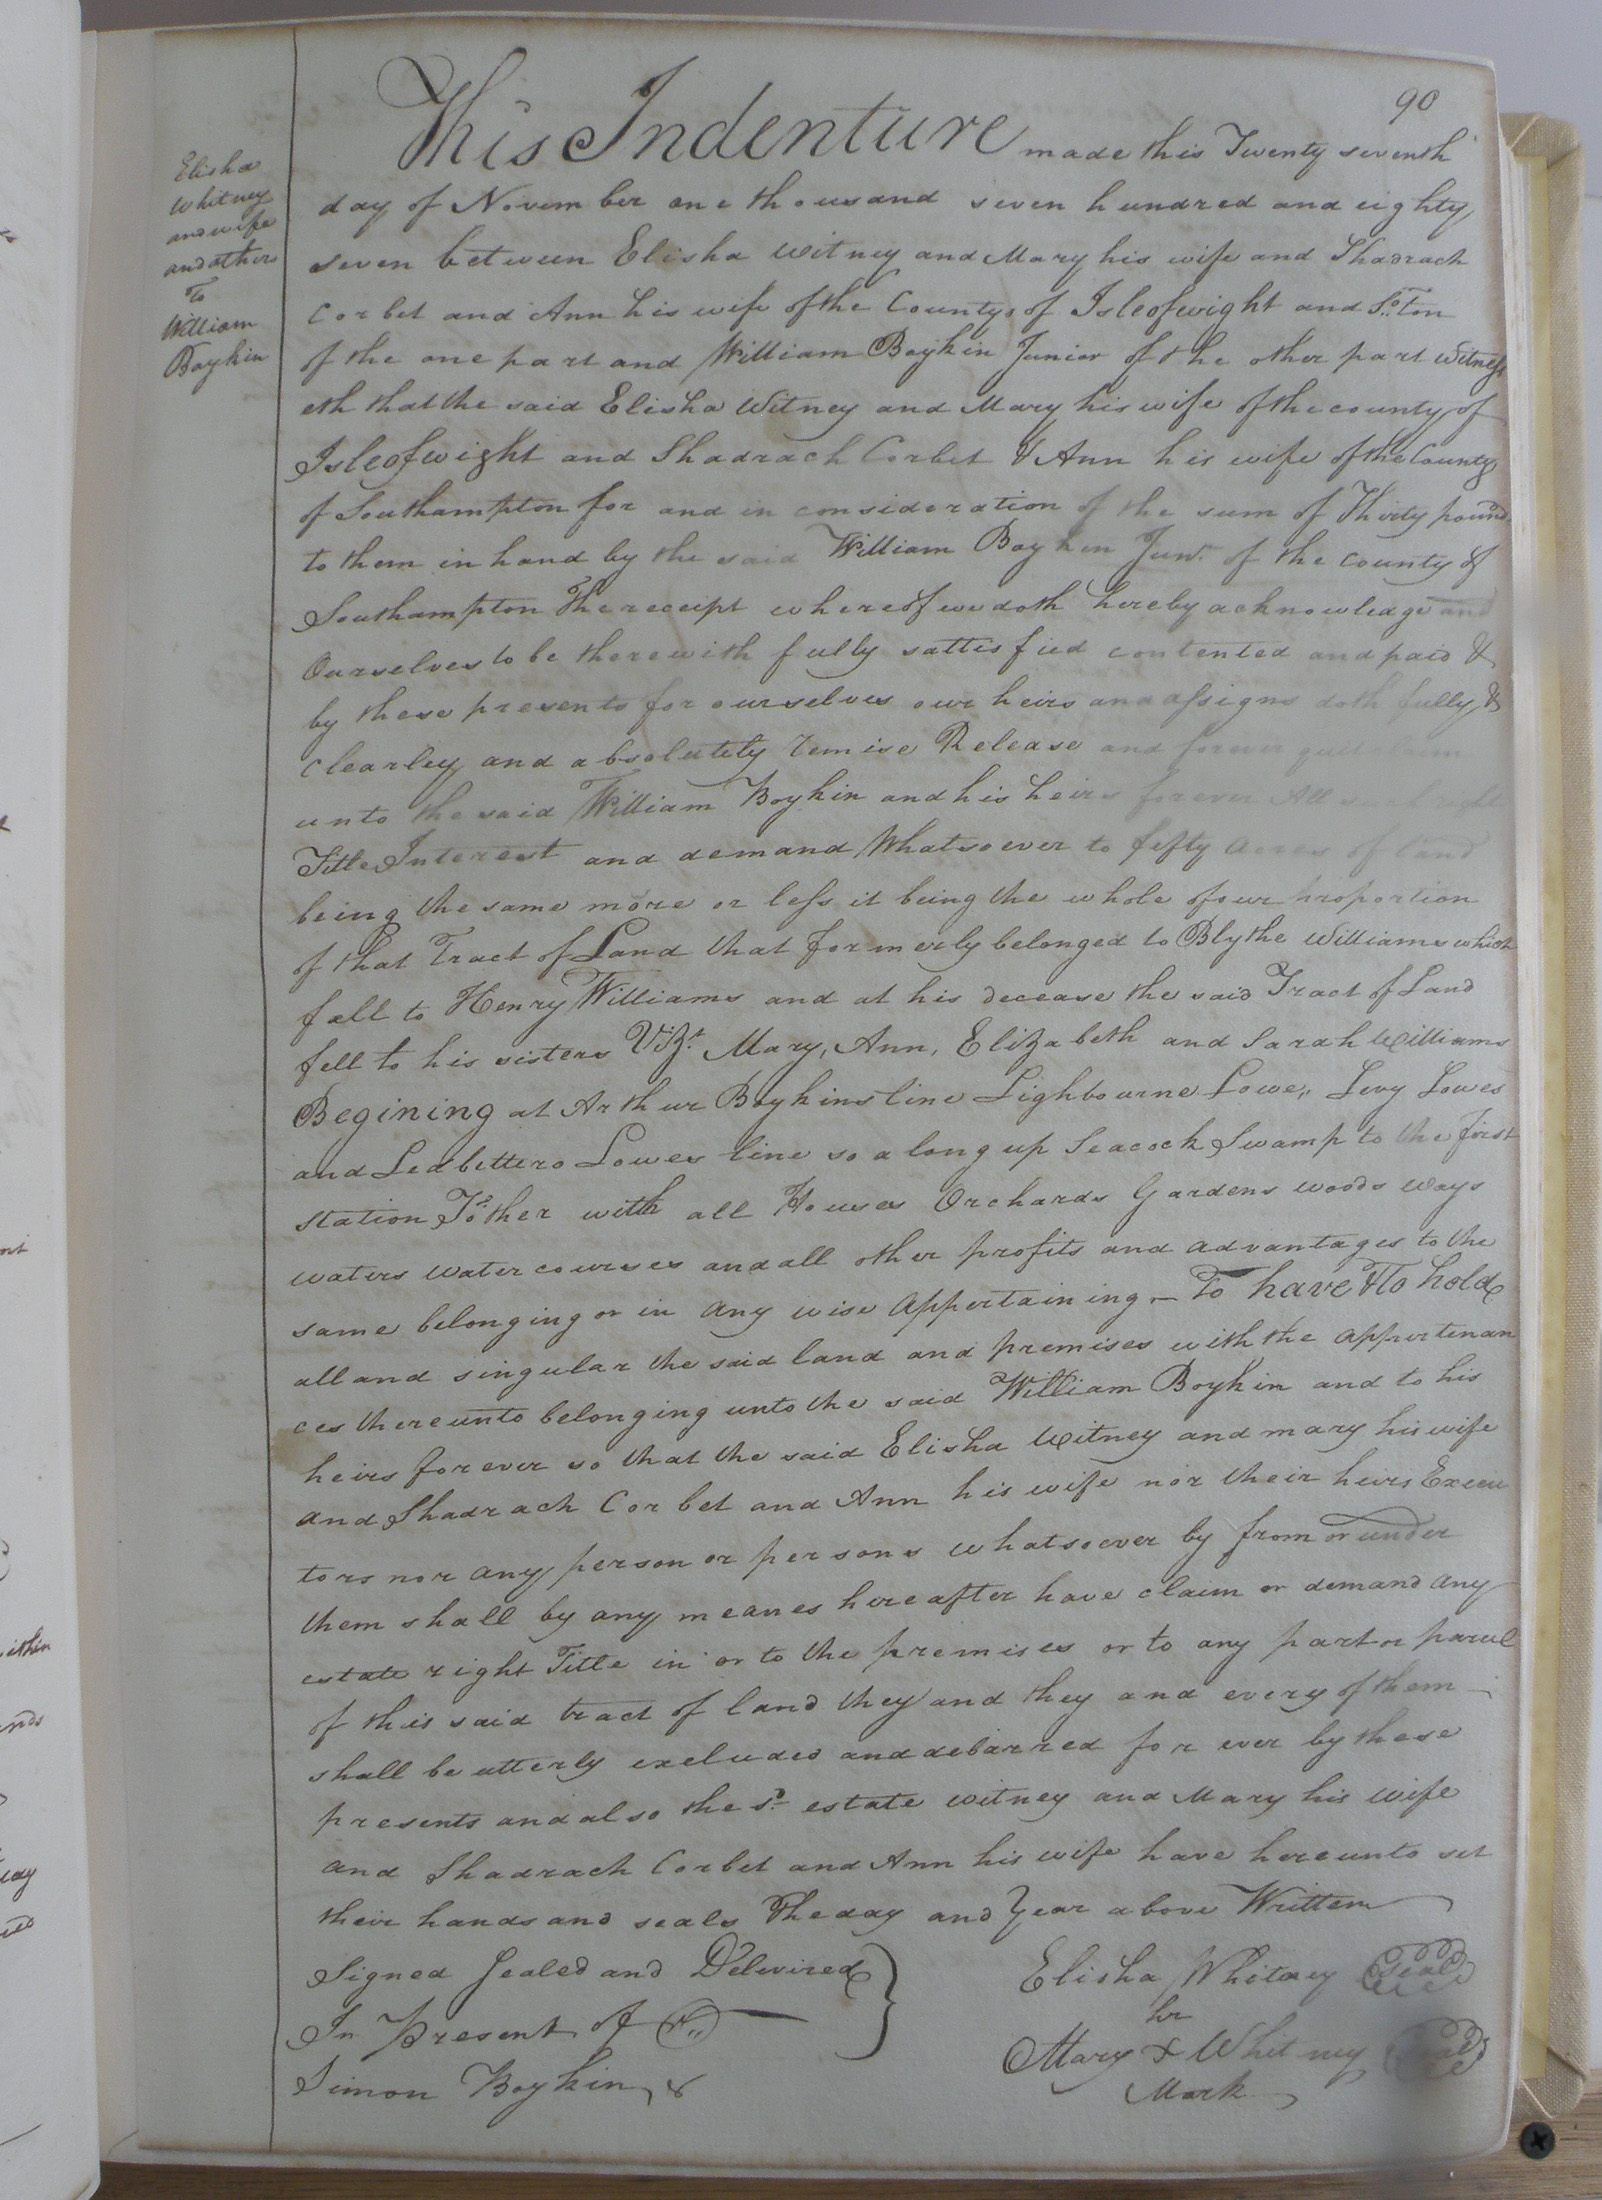 90
Elisha
Whitney
and wife
and others
To
William
Boykin
This Indenture made this Twenty seventh
day of November one thousand seven hundred and eighty
seven between Elisha Witney and Mary his wife and Shadrach
Corbet and Ann his wife of the Countys of Isleofwight and So.Ton
of the one part and William Boykin Junior of the other part Witness
eth that the said Elisha Witney and Mary his wife of the county of
Isleofwight and Shadrach Corbet & Ann his wife of the County
of Southampton for and in consideration of the sum of Thirty pounds
to them in hand by the said William Boykin Junr. of the county of
Southampton The receipt whereof we doth hereby acknowledge and
Ourselves to be therewith fully sattisfied contented and paid &
by these presents for ourselves our heirs and assigns doth fully &
clearley and absolutely remise Release and forever quit
unto the said William Boykin and his heirs forever All
Title Interest and demand Whatsoever to fefty acres of land
being the same more or less it being the whole of our proportion
of that Tract of Land that formerly belonged to Blythe Williams which
fall to Henry Williams and at his decease the said Tract of Land
fell to his sisters Vizt. Mary, Ann, Elizabeth and Sarah Williams
Begining at Arthur Boykins line Lighbourne Lowe,, Levy Lowes
and Ledbetters Lowes line so along up Seacock Swamp to the first
station Tother with all Houses Orchards Gardens woods ways
waters water courses and all other profits and advantages to the
same belonging or in any wise appertaining – To have & To hold
all and singular the said land and premises with the appurtenan
ces thereunto belonging unto the said William Boykin and to his
heirs forever so that the said Elisha Witney and mary his wife
and Shadrach Corbet and Ann his wife nor their heirs Execu
tors nor any person or persons whatsoever by from or under
them shall by any meanes hereafter have claim or demand any
estate right Title in or to the premises or to any part or parcel
of this said tract of land they and they and every of them –
shall be utterly excludes and debarred for ever by these
presents and also the sd. estate witney and Mary his wife
and Shadrach Corbet and Ann his wife have hereunto set
their hands and seals The day and Year above Written
Signed Sealed and Delivired
In Present of
Simon Boykin &
Elisha Whitney Seal
her
Mary X Whitney Seal
Mark